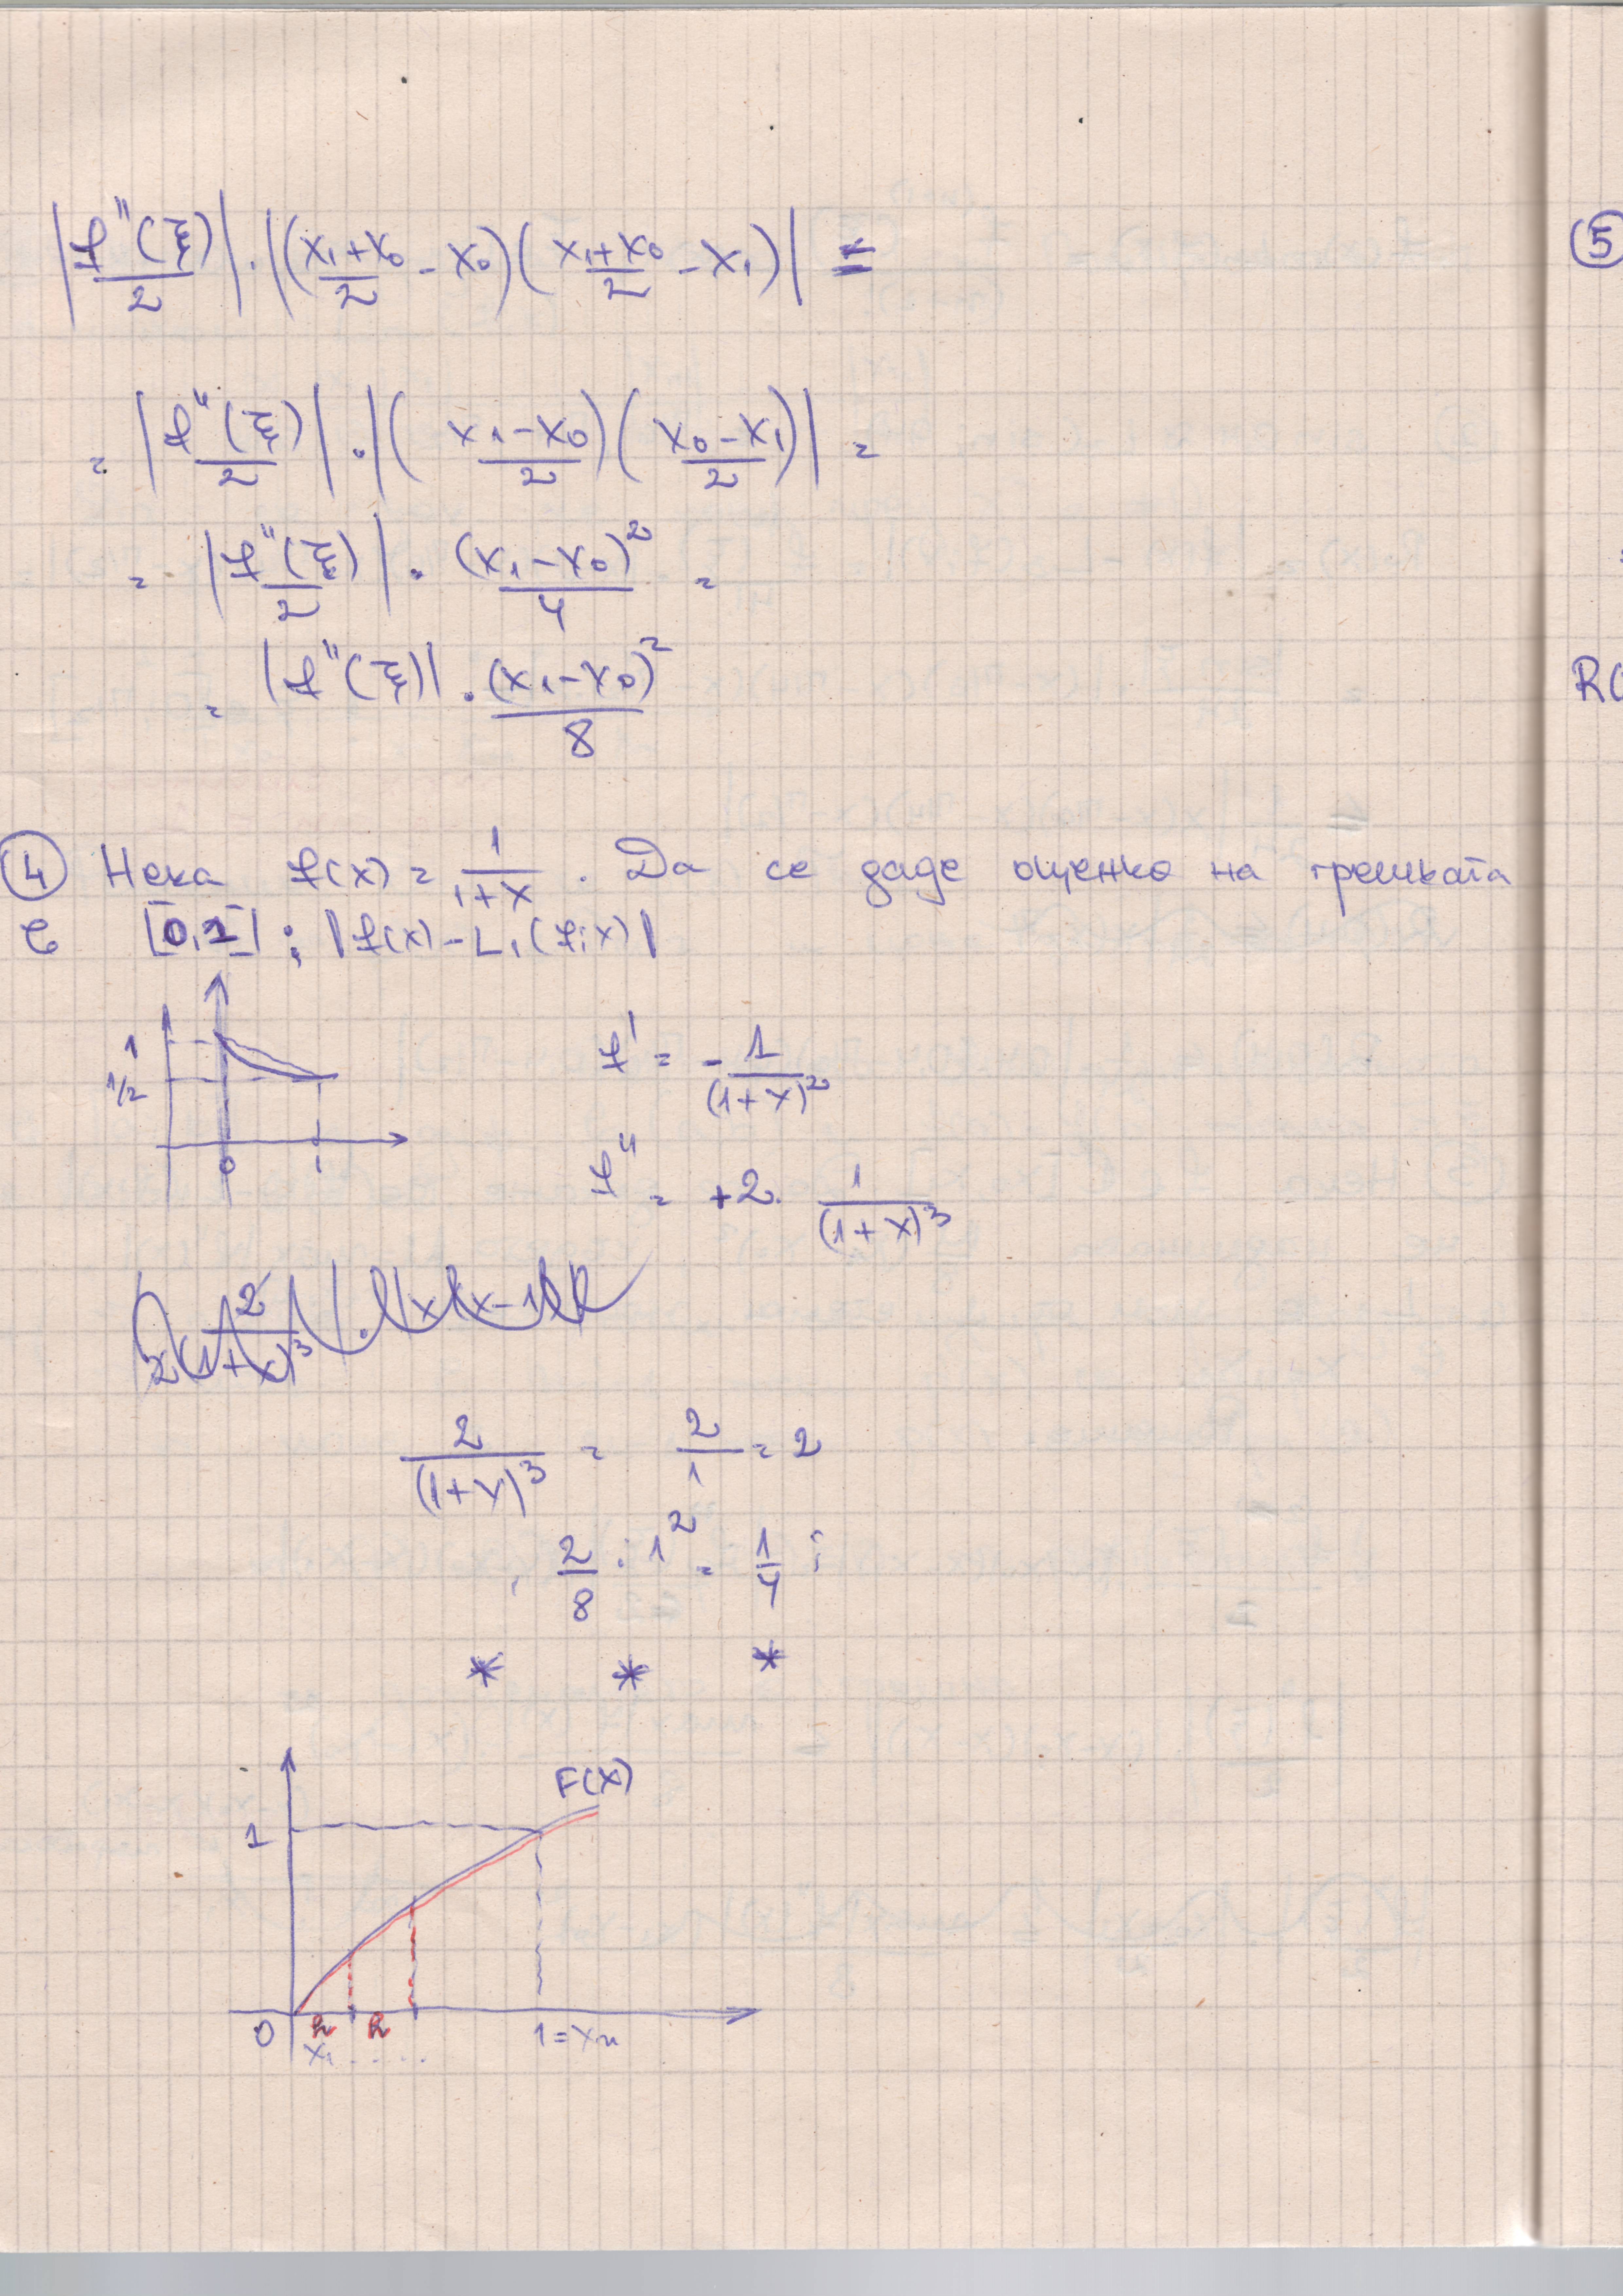 |f''(ξ)/2| · |((x₁+x₀)/2 - x₀)((x₁+x₀)/2 - x₁)| =
= |f''(ξ)/2| · |((x₁-x₀)/2)((x₀-x₁)/2)| =
= |f''(ξ)/2| · (x₁-x₀)²/4 =
= |f''(ξ)| · (x₁-x₀)²/8
④ Нека f(x) = 1/(1+x) . Да се даде оценка на грешката
в [0,1] ; |f(x) - L₁(f;x)|
1
1/2
0 1
f' = - 1/(1+x)²
f'' = +2. 1/(1+x)³
2/(1+x)³ = 2/1 = 2
2/8 . 1² = 1/4 ;
* * *
F(x)
1
0 h h 1 = xₙ
x₁ . . . .
⑤
R(